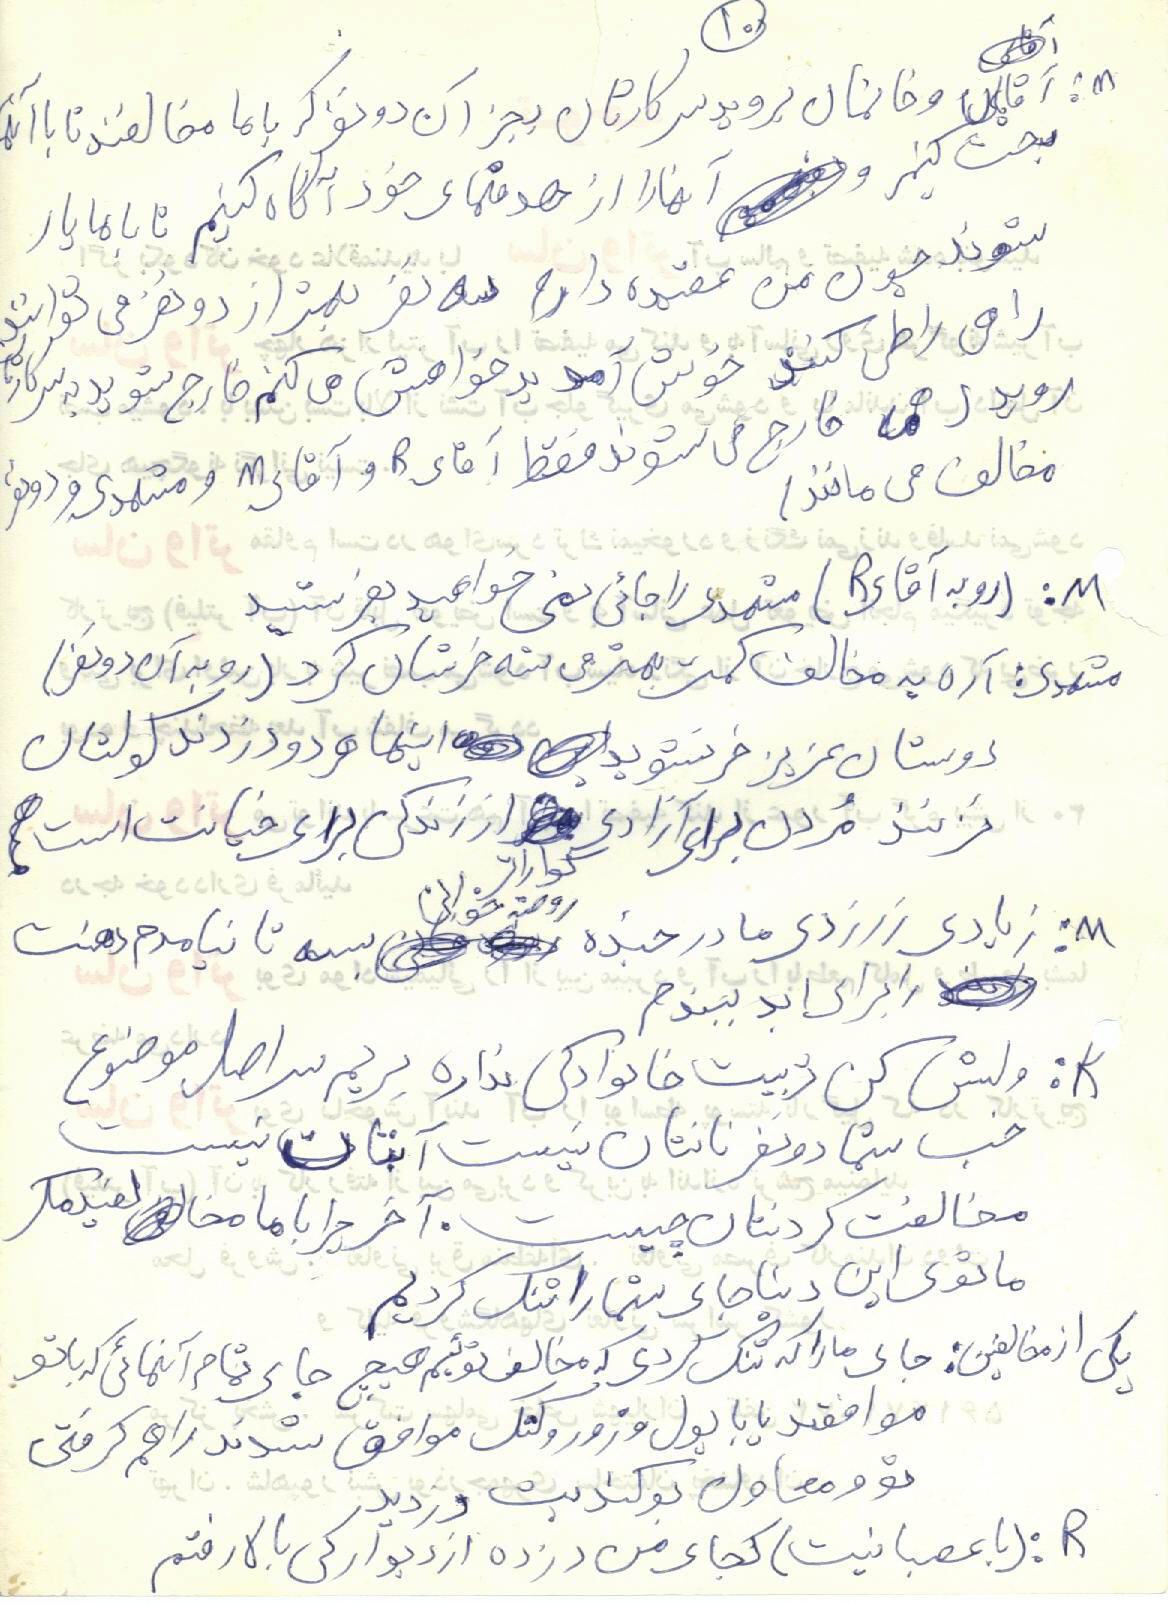 ۱۰
M: آقایان و خانمان بروید سر کارتان بجز آن دو نفر که با ما مخالفند تا با آنها
بحث کنیم و آنها را از هدفهای خود آگاه کنیم تا با ما یار
شوند چون من عقیده دارم سه نفر بهتر از دو نفر می توانند
راهی را طی کنند خوش آمدید خواهش می کنم خارج شوید به سر کارتان
روید (همه خارج می شوند فقط آقای R و آقای M و مشهدی و دو نفر
مخالف می مانند)
M: (رو به آقای R) مشهدی را جائی نمی خواهید بفرستید
مشهدی: آره یه مخالف کمتر بهتر می شه خرشان کرد (رو به آن دو نفر)
دوستان عزیز خر نشوید اینها هر دو دزدند گولتان
نزنند مردن برای آزادی گواراتر از زندگی برای خیانت است
M: زیادی زر زدی مادر جنده روضه خوانی بسه تا نیامدم دهنت
را برای ابد ببندم
R: ولش کن تربیت خانوادگی نداره بریم سر اصل موضوع
خب شما دو نفر نانتان نیست آبتان نیست
مخالفت کردنتان چیست. آخر چرا با ما مخالفید مگر
ما توی این دنیا جای شما را تنگ کردیم
یکی از مخالفین: جای ما را که تنگ کردی که مخالف توئیم هیچ جای تمام آنهائی که با تو
موافقند یا با پول و زور و کتک موافق شدند را هم گرفتی
تو و معاون بو گندیت دزدید
R: (با عصبانیت) کجای من دزده از دیوار کی بالا رفتم